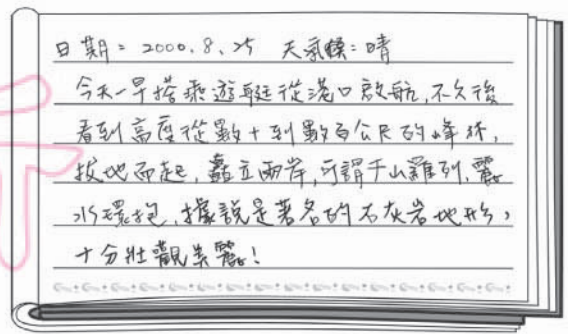 日期：2000.8.25 天氣：晴
今天一早搭乘遊艇從港口啟航，不久後
看到高度從數十到數百公尺的峰林，
拔地而起，矗立兩岸，可謂千山羅列，麗
水環抱，據說是著名的石灰岩地形，
十分壯觀美麗！